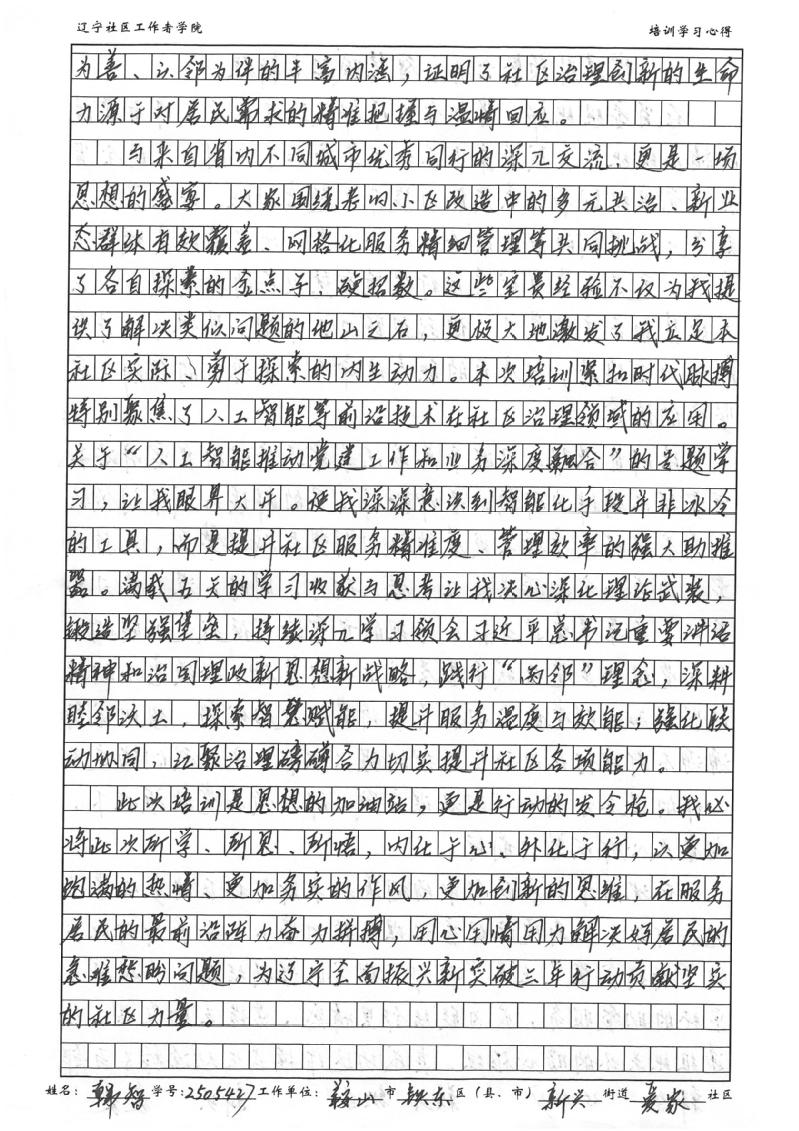 辽宁社区工作者学院 培训学习心得
为善、以邻为伴的丰富内涵，证明了社区治理创新的生命
力源于对居民需求的精准把握与温情回应。
与来自省内不同城市优秀同行的深入交流，更是一场
思想的盛宴。大家围绕老旧小区改造中的多元共治、新业
态群体有效覆盖、网格化服务精细管理等共同挑战，分享
了各自探索的金点子、硬招数。这些宝贵经验不仅为我提
供了解决类似问题的他山之石，更极大地激发了我立足本
社区实际、勇于探索的内生动力。本次培训紧扣时代脉搏
特别聚焦了人工智能等前沿技术在社区治理领域的应用。
关于“人工智能推动党建工作和业务深度融合”的专题学
习，让我眼界大开。使我深深意识到智能化手段并非冰冷
的工具，而是提升社区服务精准度、管理效率的强大助推
器。满载五天的学习收获与思考让我决心深化理论武装，
锻造坚强堡垒，持续深入学习领会习近平总书记重要讲话
精神和治国理政新思想新战略，践行“两邻”理念，深耕
睦邻沃土，探索智慧赋能，提升服务温度与效能；强化联
动协同，汇聚治理磅礴合力切实提升社区各项能力。
此次培训是思想的加油站，更是行动的发令枪。我必
将此次所学、所见、所悟，内化于心、外化于行，以更加
饱满的热情、更加务实的作风，更加创新的思维，在服务
居民的最前沿阵力奋力拼搏，用心用情用力解决好居民的
急难愁盼问题，为辽宁全面振兴新突破三年行动贡献坚实
的社区力量。
姓名：韩智 学号：2505427 工作单位：鞍山 市 铁东 区（县、市） 新兴 街道 社区